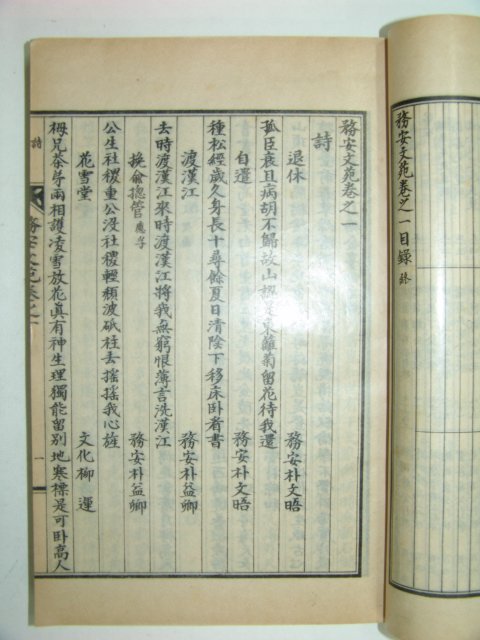 務安文苑卷之一目錄
務安文苑卷之一
詩
退休　務安朴文晤
孤臣衰且病胡不歸故山 是東籬菊留花待我還
自遣　務安朴文晤
種松經歲久身長十尋餘夏日清陰下移床臥看書
渡漢江　務安朴益卿
去時渡漢江來時渡漢江將我無窮恨薄言洗漢江
挽 摠管　務安朴益卿
公生社稷重公沒社稷輕頹波砥柱去搖搖我心旌
花雪堂　文化柳運
梅兄茶弟兩相護凌雪放花眞有神生理獨能留別地寒標是可臥高人
詩
務安文苑卷之一
一